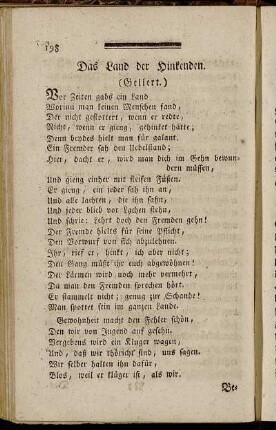 198
Das Land der Hinkenden.
(Gellert.)
Vor Zeiten gabs ein Land
Worinn man keinen Menschen fand,
Der nicht gestottert, wenn er redte,
Nicht, wenn er gieng, gehinket hätte;
Denn beydes hielt man für galant.
Ein Fremder sah den Uebelstand;
Hier, dacht er, wird man dich im Gehn bewun-
dern müssen,
Und gieng einher mit steifen Füßen.
Er gieng, ein jeder sah ihn an,
Und alle lachten, die ihn sahn,
Und jeder blieb vor Lachen stehn,
Und schrie: Lehrt doch den Fremden gehn!
Der Fremde hielts für seine Pflicht,
Den Vorwurf von sich abzulehnen.
Ihr, rief er, henkt, ich aber nicht;
Den Gang müßt ihr euch abgewöhnen!
Der Lärmen wird noch mehr vermehrt,
Da man den Fremden sprechen hört.
Er stammelt nicht; genug zur Schande!
Man spottet sein im ganzen Lande.
Gewohnheit macht den Fehler schön,
Den wir von Jugend auf gesehn.
Vergebens wird ein Kluger wagen,
Und, daß wir thöricht sind, uns sagen.
Wir selber halten ihn dafür,
Blos, weil er klüger ist, als wir.
Be-